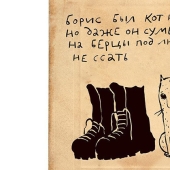 Борис был кот
но даже он
на берцы под
не ссать